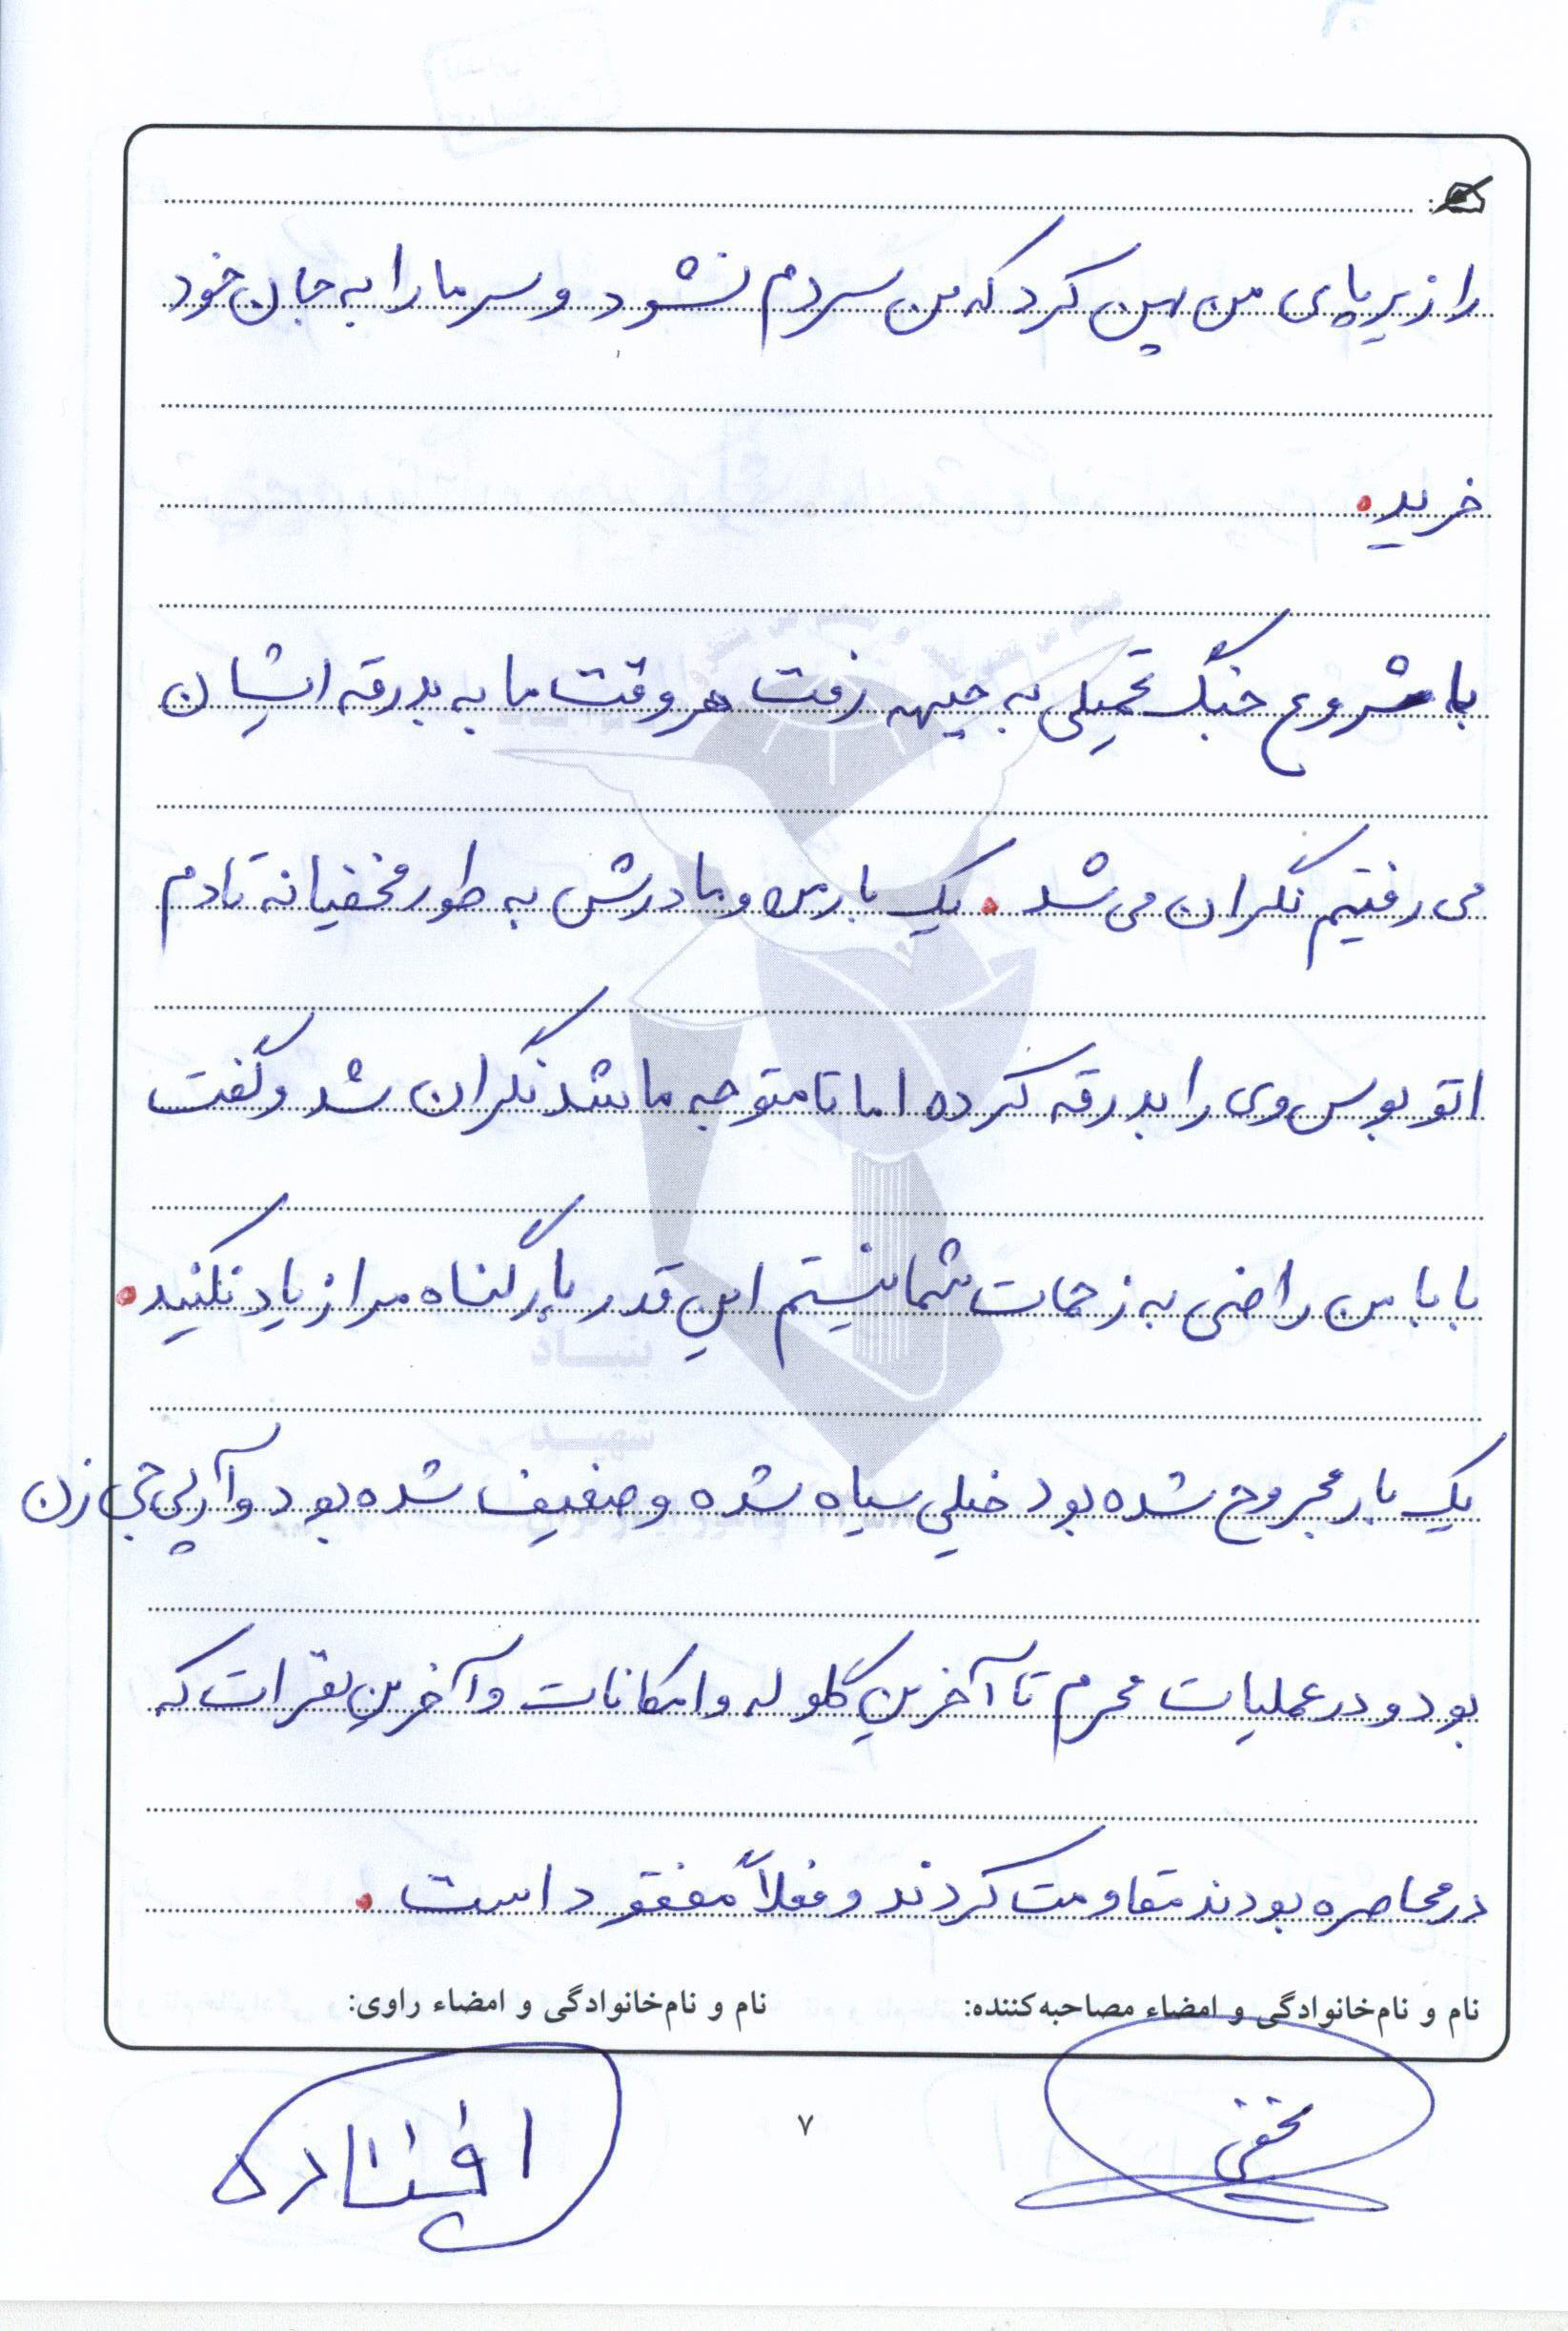 را زیر پای من پهن کرد که من سردم نشود و سرما را به جان خود
خرید.
با شروع جنگ تحمیلی به جبهه رفت هر وقت ما به بدرقه ایشان
می رفتیم نگران می شد. یک بار من و مادرش به طور مخفیانه تا دم
اتوبوس وی را بدرقه کرده اما تا متوجه ما شد نگران شد و گفت
بابا من راضی به زحمات شما نیستم این قدر بار گناه مرا زیاد نکنید.
یک بار مجروح شده بود خیلی سیاه شده و ضعیف شده بود و آرپی جی زن
بود و در عملیات محرم تا آخرین گلوله و امکانات و آخرین نفرات که
در محاصره بودند مقاومت کردند و فعلاً مفقود است.
نام و نام‌خانوادگی و امضاء مصاحبه‌کننده: نام و نام‌خانوادگی و امضاء راوی:
۷
بنیاد
شهید